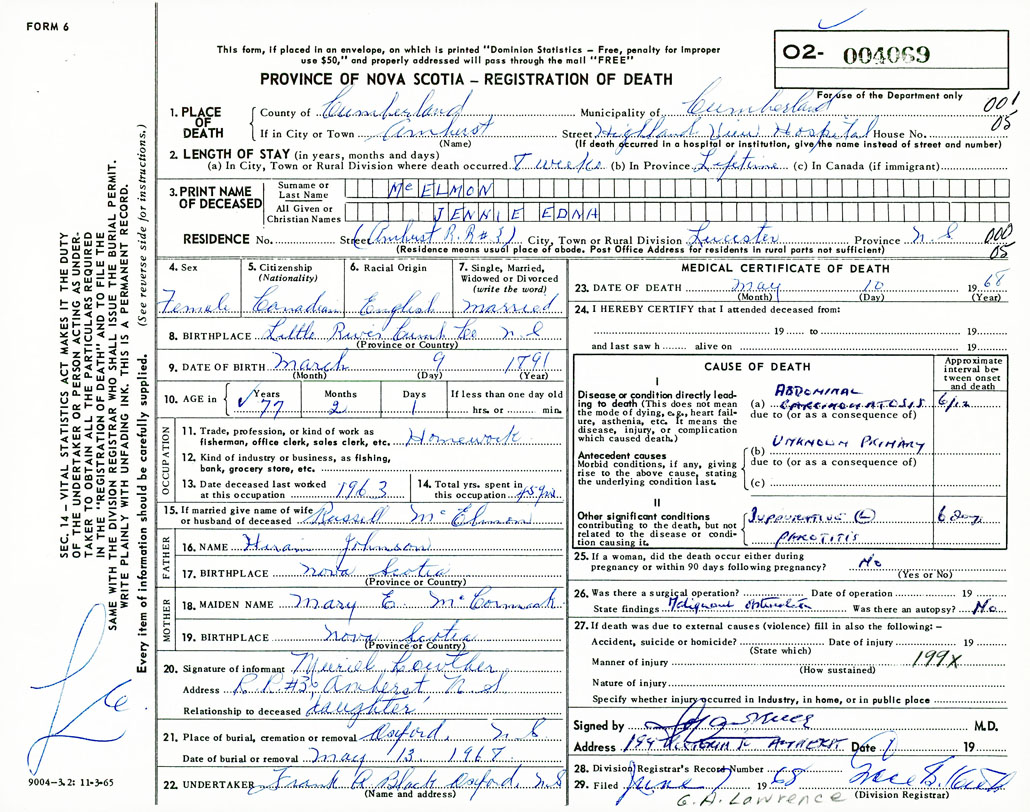 FORM 6
This form, if placed in an envelope, on which is printed "Dominion Statistics – Free, penalty for improper
use $50," and properly addressed will pass through the mail "FREE"
PROVINCE OF NOVA SCOTIA – REGISTRATION OF DEATH
O2- 004069
For use of the Department only
001
05
1. PLACE OF DEATH County of Cumberland Municipality of Cumberland
If in City or Town Amherst Street Highland View Hospital House No.
(Name) (If death occurred in a hospital or institution, give the name instead of street and number)
2. LENGTH OF STAY (in years, months and days)
(a) In City, Town or Rural Division where death occurred 8 weeks (b) In Province Lifetime (c) In Canada (if immigrant)
3. PRINT NAME OF DECEASED
Surname or Last Name McELMON
All Given or Christian Names JENNIE EDNA
RESIDENCE No. Street (Amherst R.R #3) City, Town or Rural Division Leicester Province N.S
(Residence means usual place of abode. Post Office Address for residents in rural parts not sufficient)
000
05
4. Sex Female
5. Citizenship (Nationality) Canadian
6. Racial Origin English
7. Single, Married, Widowed or Divorced (write the word) married
8. BIRTHPLACE Little River Cumb Co N S
(Province or Country)
9. DATE OF BIRTH March 9 1791
(Month) (Day) (Year)
10. AGE in Years 77 Months 2 Days 1 If less than one day hrs. or min.
OCCUPATION
11. Trade, profession, or kind of work as fisherman, office clerk, sales clerk, etc. Homework
12. Kind of industry or business, as fishing, bank, grocery store, etc.
13. Date deceased last worked at this occupation 1963
14. Total yrs. spent in this occupation 45 yrs.
15. If married give name of wife or husband of deceased Russell McElmon
FATHER
16. NAME Hiram Johnson
17. BIRTHPLACE Nova Scotia
(Province or Country)
MOTHER
18. MAIDEN NAME Mary E. McCormack
19. BIRTHPLACE Nova Scotia
(Province or Country)
20. Signature of informant Muriel Lowther
Address R.R.#3, Amherst, N S
Relationship to deceased daughter
21. Place of burial, cremation or removal Oxford, N.S
Date of burial or removal May 13 1968.
22. UNDERTAKER Frank R Black Oxford N S
(Name and address)
MEDICAL CERTIFICATE OF DEATH
23. DATE OF DEATH May 10 1968
(Month) (Day) (Year)
24. I HEREBY CERTIFY that I attended deceased from:
19 to 19
and last saw h alive on 19
CAUSE OF DEATH
Approximate interval between onset and death
I
Disease or condition directly leading to death (This does not mean the mode of dying, e.g., heart failure, asthenia, etc. It means the disease, injury, or complication which caused death.)
(a) ABDOMINAL CARCINOMATOSIS 6/12
due to (or as a consequence of)
Antecedent causes
Morbid conditions, if any, giving rise to the above cause, stating the underlying condition last.
(b) UNKNOWN PRIMARY
due to (or as a consequence of)
(c)
II
Other significant conditions contributing to the death, but not related to the disease or condition causing it.
SUPPURATIVE (L) PAROTITIS 6 days
25. If a woman, did the death occur either during pregnancy or within 90 days following pregnancy? No
(Yes or No)
26. Was there a surgical operation? Date of operation 19
State findings Malignant obstruction Was there an autopsy? No
27. If death was due to external causes (violence) fill in also the following: –
Accident, suicide or homicide? Date of injury 19
(State which)
Manner of injury 199X
(How sustained)
Nature of injury
Specify whether injury occurred in Industry, in home, or in public place
Signed by M.D.
Address 199 VICTORIA ST AMHERST Date 19
28. Division Registrar's Record Number
29. Filed June 1968
(Division Registrar)
G. A. Lawrence
SEC. 14 – VITAL STATISTICS ACT MAKES IT THE DUTY
OF THE UNDERTAKER OR PERSON ACTING AS UNDER-
TAKER TO OBTAIN ALL THE PARTICULARS REQUIRED
IN THE "REGISTRATION OF DEATH" AND TO FILE THE
SAME WITH THE DIVISION REGISTRAR WHO SHALL ISSUE THE BURIAL PERMIT.
WRITE PLAINLY WITH UNFADING INK. THIS IS A PERMANENT RECORD.
Every item of information should be carefully supplied. (See reverse side for instructions.)
9004–3.2: 11-3-65